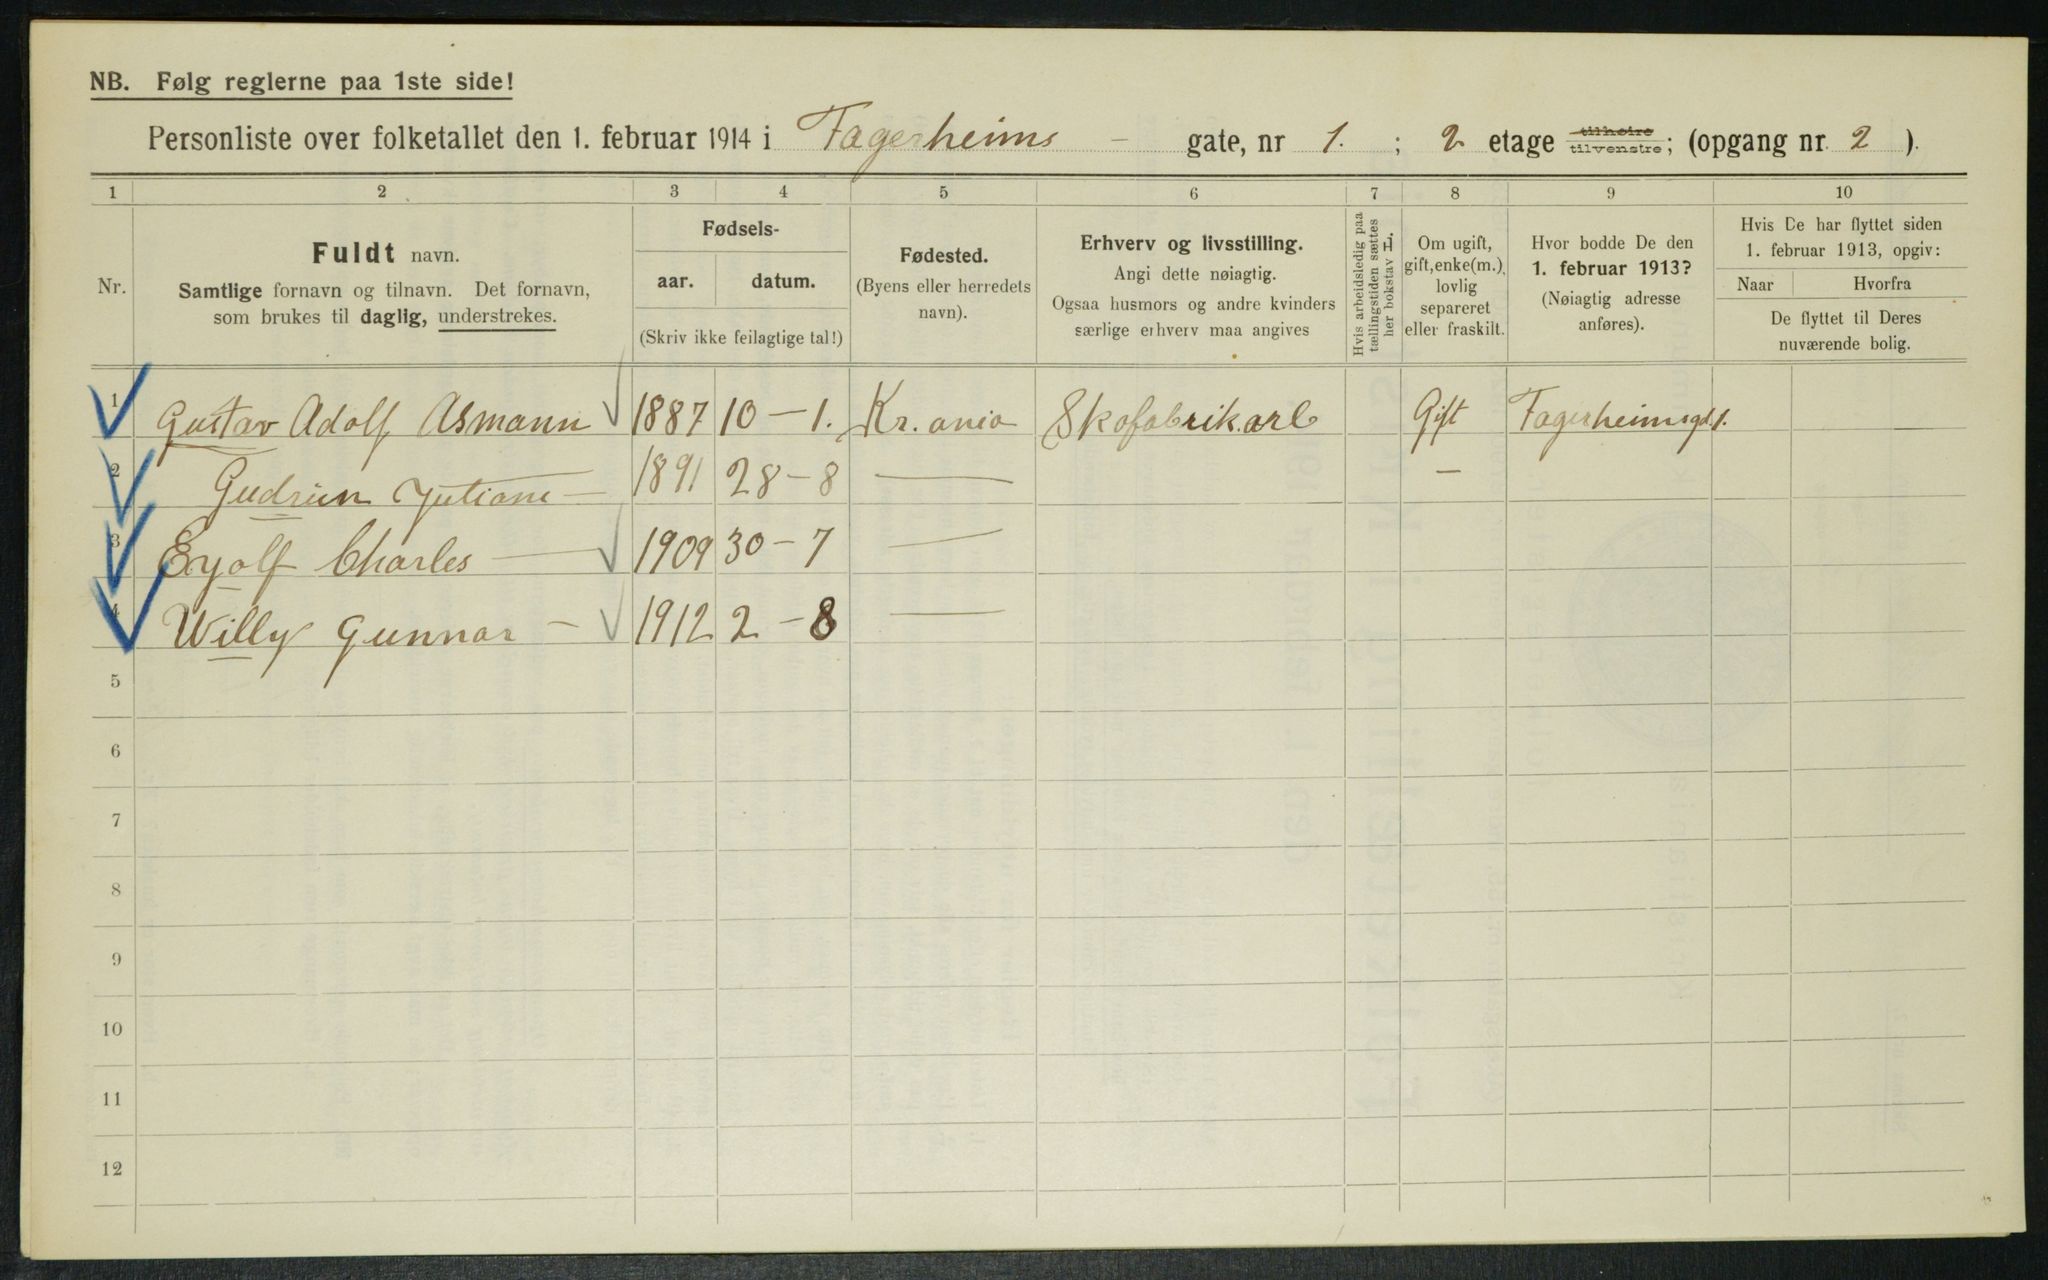 NB. Følg reglerne paa 1ste side!
Personliste over folketallet den 1. februar 1914 i Fagerheims - gate, nr 1. ; 2 etage tilhøire tilvenstre; (opgang nr. 2 ).
1 2 3 4 5 6 7 8 9 10
Nr.
Fuldt navn.
Samtlige fornavn og tilnavn. Det fornavn,
som brukes til daglig, understrekes.
Fødsels-
aar. datum.
(Skriv ikke feilagtige tal!)
Fødested.
(Byens eller herredets
navn).
Erhverv og livsstilling.
Angi dette nøiagtig.
Ogsaa husmors og andre kvinders
særlige erhverv maa angives
Hvis arbeidsledig paa
tællingstiden sættes
her bokstav L.
Om ugift,
gift, enke(m.),
lovlig
separeret
eller fraskilt.
Hvor bodde De den
1. februar 1913?
(Nøiagtig adresse
anføres).
Hvis De har flyttet siden
1. februar 1913, opgiv:
Naar Hvorfra
De flyttet til Deres
nuværende bolig.
1 Gustav Adolf Asmann 1887 10-1. Kr.ania Skofabrik.arb Gift Fagerheimsgd. 1.
2 Gudrun Jutiane — 1891 28-8 — —
3 Eyolf Charles — 1909 30-7 —
4 Willy Gunnar — 1912 2-8 —
5
6
7
8
9
10
11
12